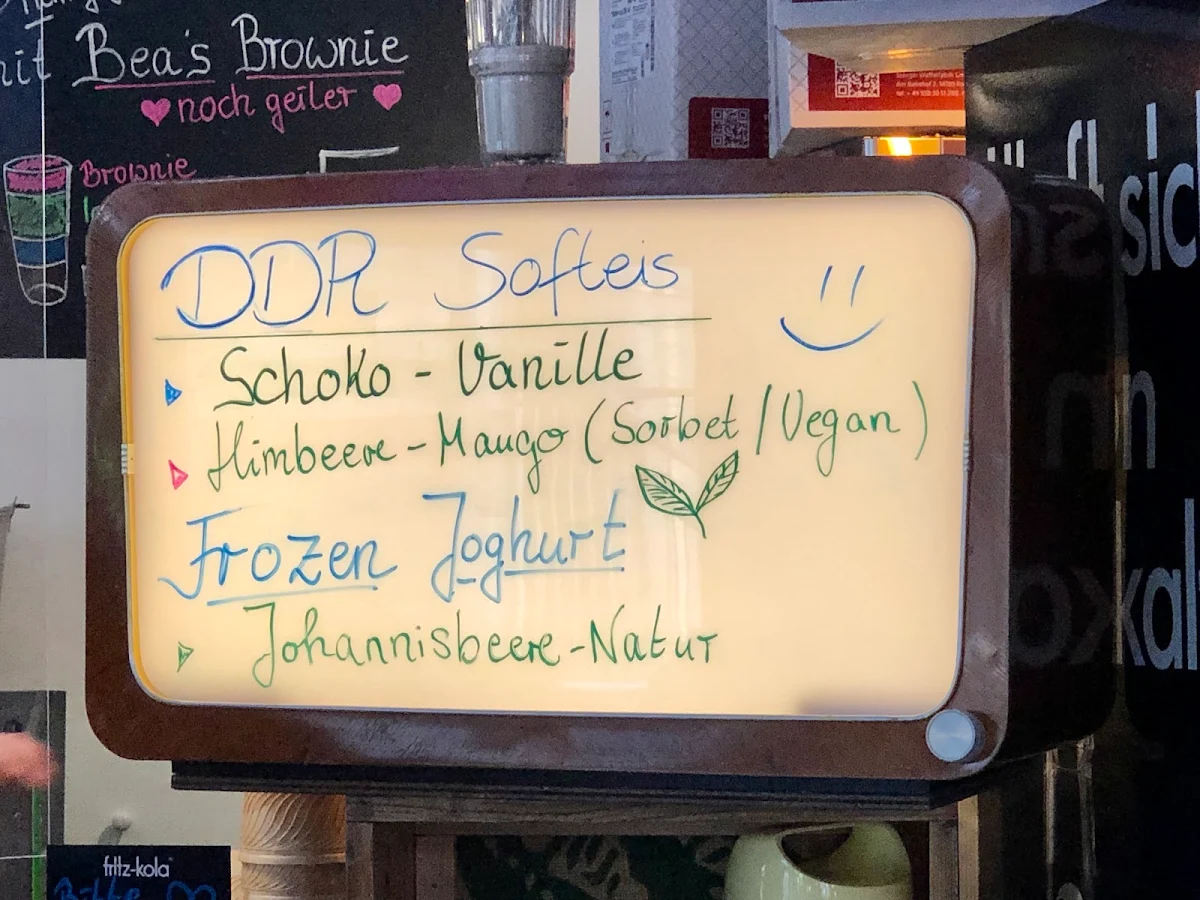 mit Bea's Brownie
noch geiler
Brownie
DDR Softeis
Schoko - Vanille
Himbeere - Mango (Sorbet / Vegan)
Frozen Joghurt
Johannisbeere - Natur
fritz-kola
Bitte
sich
kal